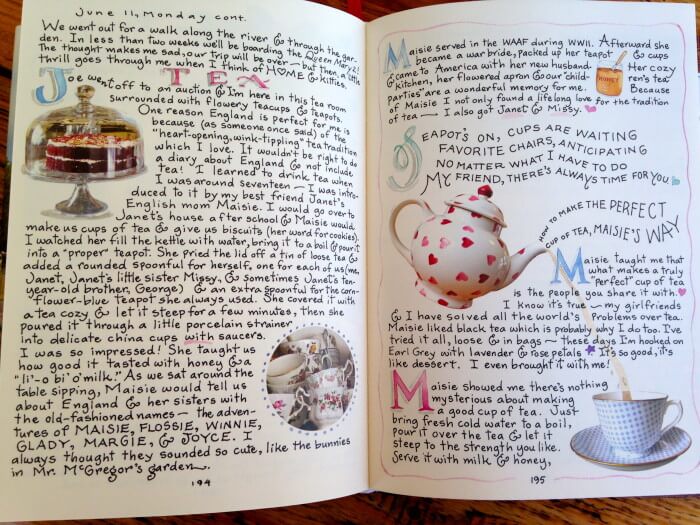 June 11, Monday cont.
We went out for a walk along the river & through the gar-
den. In less than two weeks we'll be boarding the Queen Mary 2!
The thought makes me sad, our trip will be over — but then, a little
thrill goes through me when I think of HOME & Kitties.
TEA
Joe went off to an auction & I'm here in this tea room
surrounded with flowery teacups & teapots.
One reason England is perfect for me is
because (as someone once said) of the
"heart-opening, wink-tippling" tea tradition
which I love. It wouldn't be right to do
a diary about England & not include
tea! I learned to drink tea when
I was around seventeen — I was intro-
duced to it by my best friend Janet's
English mom Maisie. I would go over to
Janet's house after school & Maisie would
make us cups of tea & give us biscuits (her word for cookies).
I watched her fill the kettle with water, bring it to a boil & pour it
into a "proper" teapot. She pried the lid off a tin of loose tea &
added a rounded spoonful for herself, one for each of us (me,
Janet, Janet's little sister Missy, & sometimes Janet's ten-
year-old brother, George) & an extra spoonful for the corn-
flower-blue teapot she always used. She covered it with
a tea cozy & let it steep for a few minutes, then she
poured it through a little porcelain strainer
into delicate china cups with saucers.
I was so impressed! She taught us
how good it tasted with honey & a
"li'-o bi' o' milk." As we sat around the
table sipping, Maisie would tell us
about England & her sisters with
the old-fashioned names — the adven-
tures of MAISIE, FLOSSIE, WINNIE,
GLADY, MARGIE, & JOYCE. I
always thought they sounded so cute, like the bunnies
in Mr. McGregor's garden.
194
Maisie served in the WAAF during WWII. Afterward she
became a war bride, packed up her teapot & cups
& came to America with her new husband. Her cozy
kitchen, her flowered apron & our "child-
ren's tea
parties" are a wonderful memory for me. Because
of Maisie I not only found a lifelong love for the tradition
of tea — I also got Janet & Missy.
HONEY
TEAPOT'S ON, CUPS ARE WAITING
FAVORITE CHAIRS, ANTICIPATING
NO MATTER WHAT I HAVE TO DO
MY FRIEND, THERE'S ALWAYS TIME FOR YOU
HOW TO MAKE THE PERFECT
CUP OF TEA, MAISIE'S WAY
Maisie taught me that
what makes a truly
"perfect" cup of tea
is the people you share it with.
I know it's true — my girlfriends
& I have solved all the world's problems over tea.
Maisie liked black tea which is probably why I do too. I've
tried it all, loose & in bags — these days I'm hooked on
Earl Grey with lavender & rose petals It's so good, it's
like dessert. I even brought it with me!
Maisie showed me there's nothing
mysterious about making
a good cup of tea. Just
bring fresh cold water to a boil,
pour it over the tea & let it
steep to the strength you like.
Serve it with milk & honey,
195